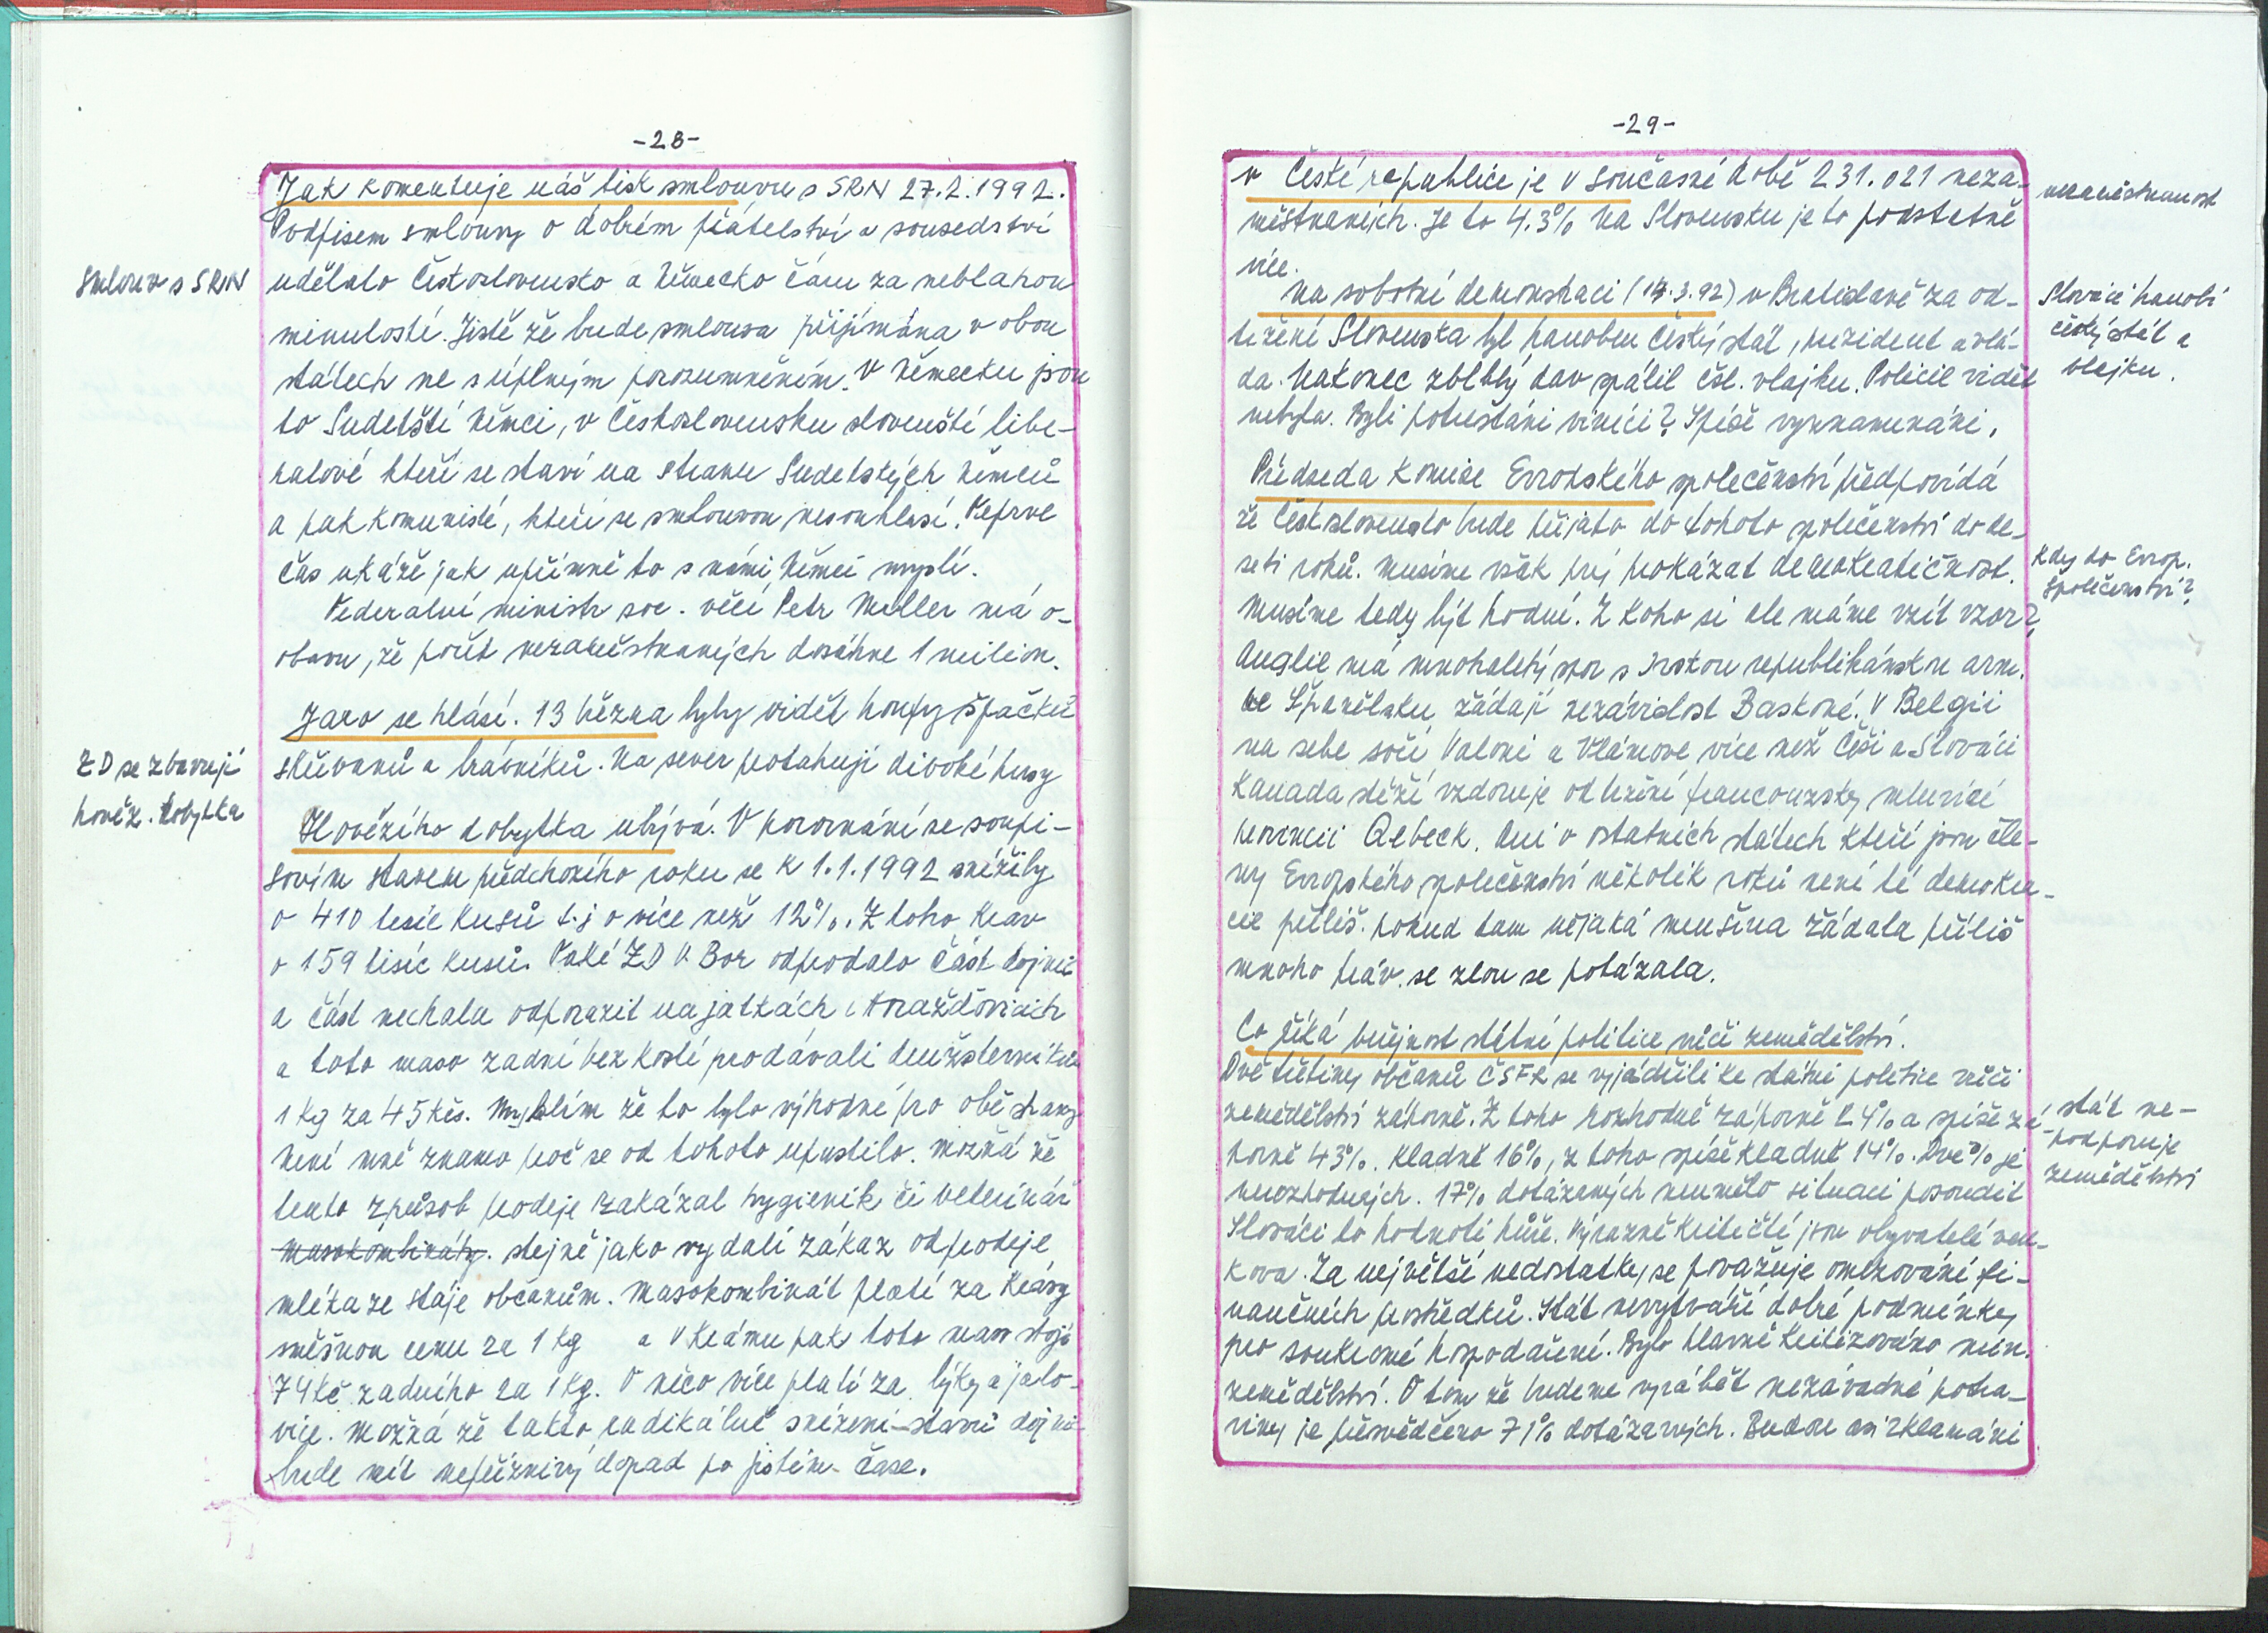 -28-
Jak komentuje náš tisk smlouvu s SRN 27.2.1992.
Podpisem smlouvy o dobrém přátelství a sousedství
Smlouva s SRN
udělalo Československo a Německo čáru za neblahou
minulostí. Jistě že bude smlouva přijímána v obou
státech ne s úplným porozumněním. V Německu jsou
to Sudetští Němci, v Československu slovenští libe-
ralové kteří se staví na stranu Sudetských Němců
a pak komunisté, kteří se smlouvou nesouhlasí. Teprve
čas ukáže jak upřímně to s námi Němci myslí.
Federalní ministr soc. věcí Petr Miller má o-
obavu, že počet nezaměstnaných dosáhne 1 milion.
Jaro se hlásí. 13 března byly vidět houfy špačků
skřivanů a trávníků. Na sever protahují divoké husy
ZD se zbavují
hověz. dobytka
Hovězího dobytka ubývá. V porovnání se soupi-
sovím stavem předchozího roku se k 1.1.1992 snížily
o 410 tisíc kusů t.j o více než 12%. Z toho krav
o 159 tisíc kusů. Také ZD V. Bor odprodalo část dojnic
a část nechala odporazit na jatkách v Horažďovicích
a toto maso zadní bez kostí prodávali družstevníkům
1 kg za 45 kčs. Myslím že to bylo výhodné pro obě strany
Není mně známo proč se od tohoto upustilo. Možná že
tento způsob prodeje zakázal hygienik či veterinář
Masokombináty. stejně jako vydali zákaz odprodeje
mléka ze stáje občanům. Masokombinát platí za krávy
směšnou cenu za 1 kg a v krámu pak toto maso stojí
74 kč zadního za 1 kg. O něco více platí za býky a jalo-
vice. Možná že takto radikálně snížení stavů dojnic
bude mít nepříznivý dopad po jistém čase.
-29-
v České republice je v současné době 231.021 neza-
nezaměstnanost
městnaných. Je to 4.3% Na Slovensku je to podstatně
více.
Na sobotní demonstraci (14.3.92) v Bratislavě za od-
Slováci hanobí
český stát a
vlajku.
tržení Slovenska byl hanoben Český stát, prezident a vlá-
da. Nakonec zblblý dav spálil čsl. vlajku. Policie vidět
nebyla. Byli potrestáni viníci? Spíše vyznamenáni.
Předseda komise Evropského společenství předpovídá
že Československo bude přijato do tohoto společenství do de-
seti roků. Musíme však prý prokázat demokratičnost.
Kdy do Evrop.
společenství?
Musíme tedy být hodní. Z koho si ale máme vzít vzor?
Anglie má mnohaletý spor s Irskou republikánskou arm.
Ve Španělsku žádají nezávislost Baskové. V Belgii
na sebe sočí Valoni a Vlámové více než Češi a Slováci
Kanada stěží vzdoruje odtržení francouzsky mluvící
provincii Qebeck. Ani v ostatních státech kteří jsou čle-
ny Evropského společenství několik roků není té demokra-
cie přiliš. pokud tam nějaká menšina žádala příliš
mnoho práv se zlou se potázala.
Co říká veřejnost státní politice vůči zemědělství.
Dvě třetiny občanů ČSFR se vyjádřili ke státní politice vůči
zemědělství záporně. Z toho rozhodně záporně 24% a spíše zá-
stát ne-
podporuje
zemědělství
porně 43%. Kladně 16%, z toho spíše kladně 14%. Dvě % je
nerozhodných. 17% dotázaných neumělo situaci posoudit
Slováci to hodnotí hůře. Výrazně kritičtí jsou obyvatelé ven-
kova. Za největší nedostatky se považuje omezování fi-
nančních prostředků. Stát nevytváří dobré podmínky
pro soukromé hospodaření. Bylo hlavně kritizováno min.
zemědělství. O tom že budeme vyrábět nezávadné potra-
viny je přesvědčeno 71% dotázaných. Budou asi zklamáni